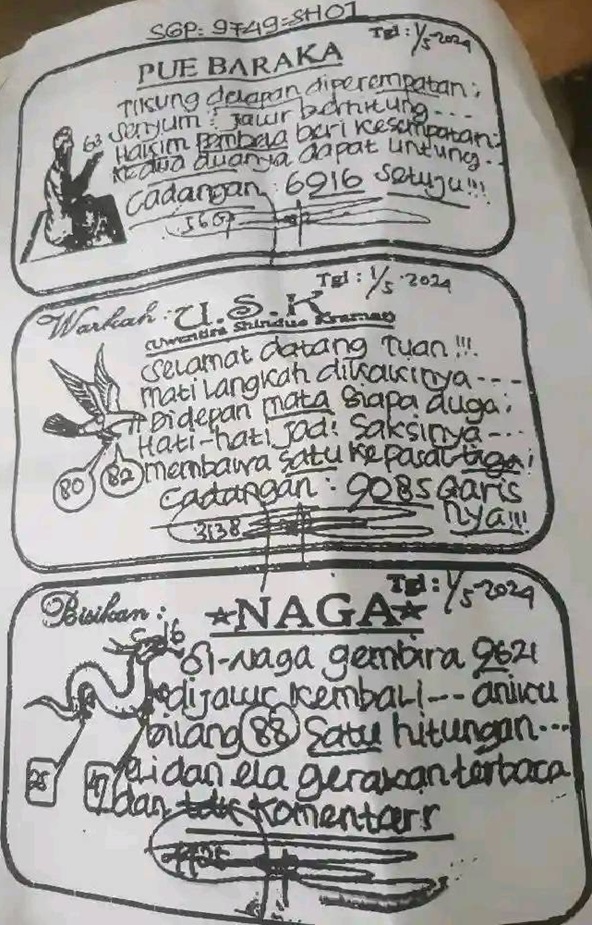 SGP: 9749=SHO1
Tgl: 1/5-2024
PUE BARAKA
Tikung delapan diperempatan;
63 Senyum: Jalur berhitung....
Hakim Pembela beri kesempatan;
Kedua duanya dapat untung...
Cadangan: 6916 Setuju!!!
5607
Tgl: 1/5-2024
Warkah: U.S.K
(Uwentira Shindue Kramat)
Selamat datang Tuan!!!
mati langkah dikakinya---
Didepan mata siapa duga;
Hati-hati jadi saksinya---
membawa satu kepasal tiga!
80 82
Cadangan: 9085 Garis
nya!!!
3138
Tgl: 1/5-2024
Bisikan: NAGA
16
Si-Naga gembira 9621
dijalur kembali--- aniku
bilang 88 Satu hitungan...
47
dan ela gerakan terbaca
dan tdk Komentarr